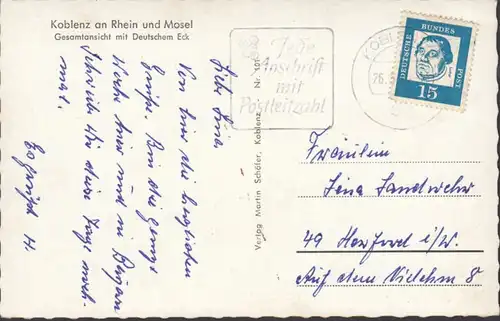 Koblenz an Rhein und Mosel
Gesamtansicht mit Deutschem Eck
Jede
Anschrift
mit
Postleitzahl
DEUTSCHE
BUNDES
POST
15
Verlag Martin Schäfer, Koblenz
Nr. 101
Liebe
Von hier die herzlichsten
Grüße. Bin die ganze
Woche hier und in
Schreib Dir diese Tage noch
mal.
H.
Fräulein
Lina Landwehr
49 Herford i/W.
Auf dem 8